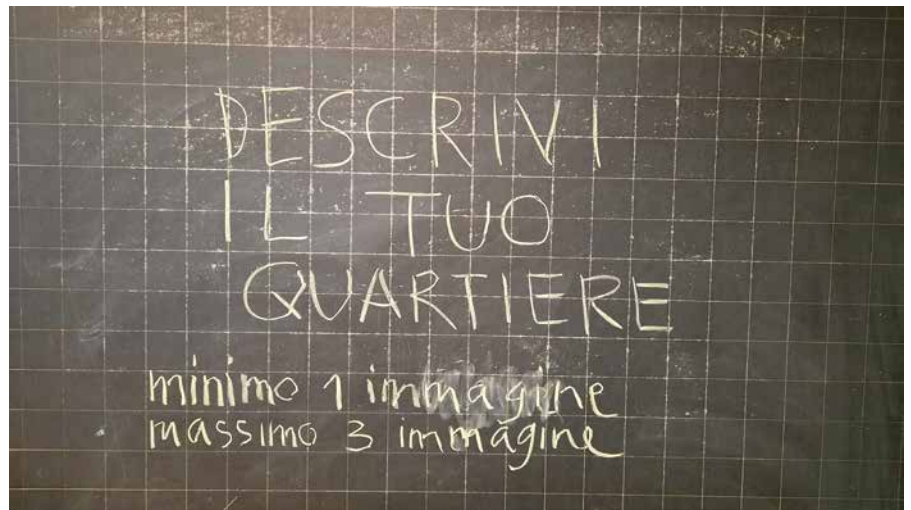 DESCRIVI
IL TUO
QUARTIERE
minimo 1 immagine
massimo 3 immagine